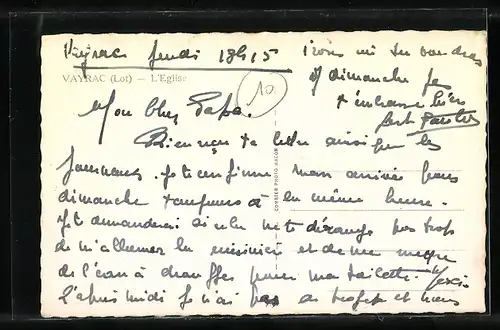 Vayrac Jeudi 18h15
VAYRAC (Lot) — L'Eglise
10
Mon Cher Papa.
Bien reçu ta lettre ainsi que les
journaux. Je te confirme mon arrivée pour
dimanche à la même heure.
Je te demanderai si cela ne te dérange pas trop
de m'allumer la cuisinière et de me mettre
de l'eau à chauffer pour ma toilette. Merci
L'après midi je n'ai pas et nous
irons où tu voudras
dimanche je
t'embrasse bien
fort
COMBIER PHOTO MACON